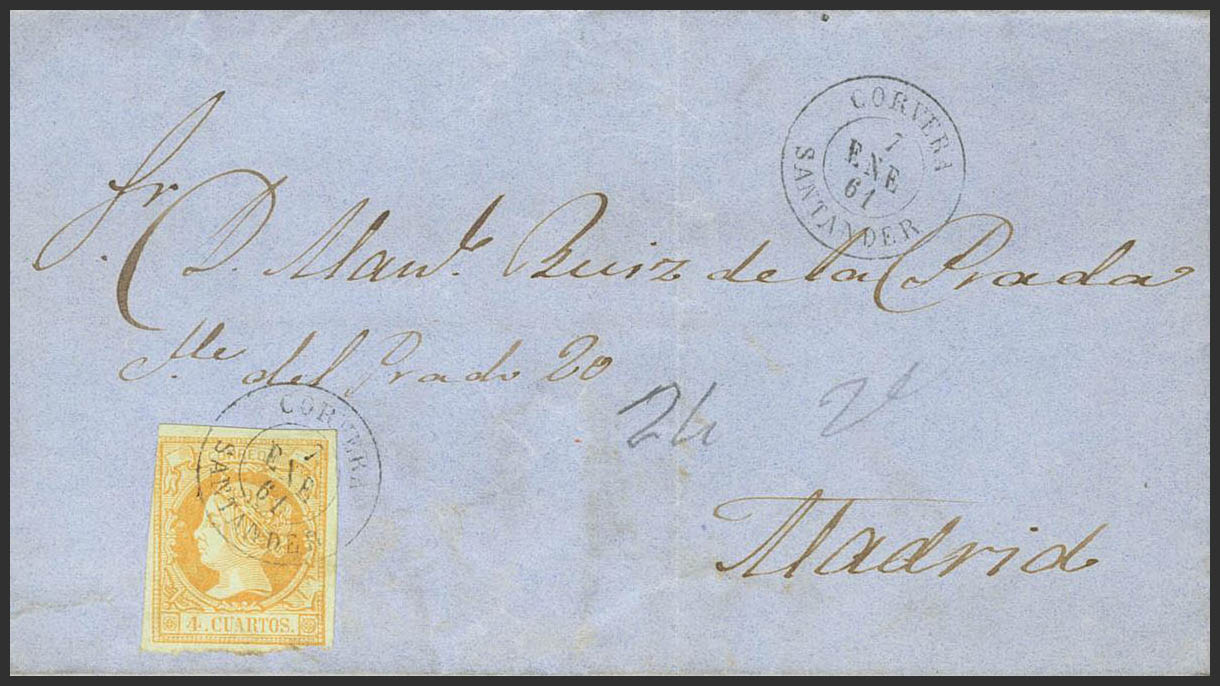 CORVERA
7
ENE
61
SANTANDER
Sr. D. Manl. Ruiz de la Prada
Clle del Prado 20
24
Madrid
CORVERA
7
ENE
61
SANTANDER
CORREOS
4 CUARTOS.